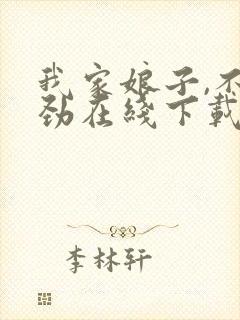 我家娘子,不
劲在线下载
李林轩